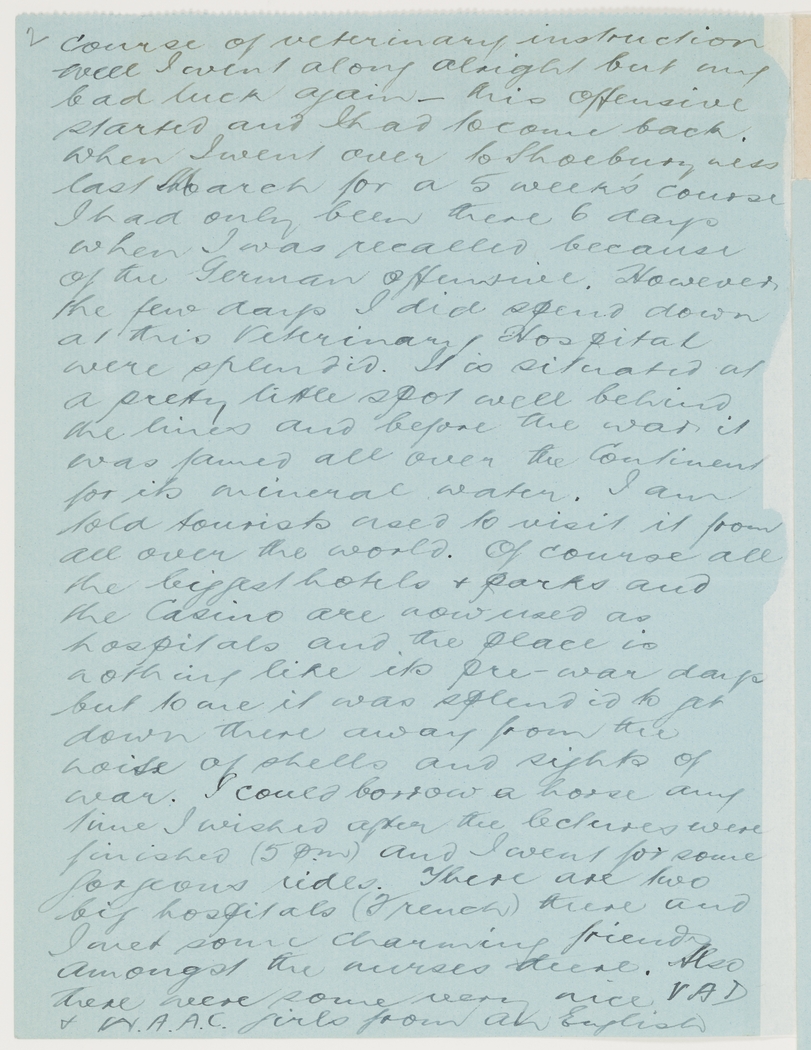 2 course of veterinary instruction
well I went along alright but my
bad luck again – this offensive
started and I had to come back.
When I went over to Shoeburyness
last March for a 5 week's course
I had only been there 6 days
when I was recalled because
of the German offensive. However
the few days I did spend down
at this Veterinary Hospital
were splendid. It is situated at
a pretty little spot well behind
the lines and before the war it
was famed all over the Continent
for its mineral water. I am
told tourists used to visit it from
all over the world. Of course all
the biggest hotels & parks and
the Casino are now used as
hospitals and the place is
nothing like its pre-war days
but to me it was splendid to get
down there away from the
noise of shells and sights of
war. I could borrow a horse any
time I wished after the lectures were
finished (5 p.m) and I went for some
gorgeous rides. There are two
big hospitals (French) there and
I met some charming friends
amongst the nurses there. Also
there were some very nice VAD
& W.A.A.C. girls from an English